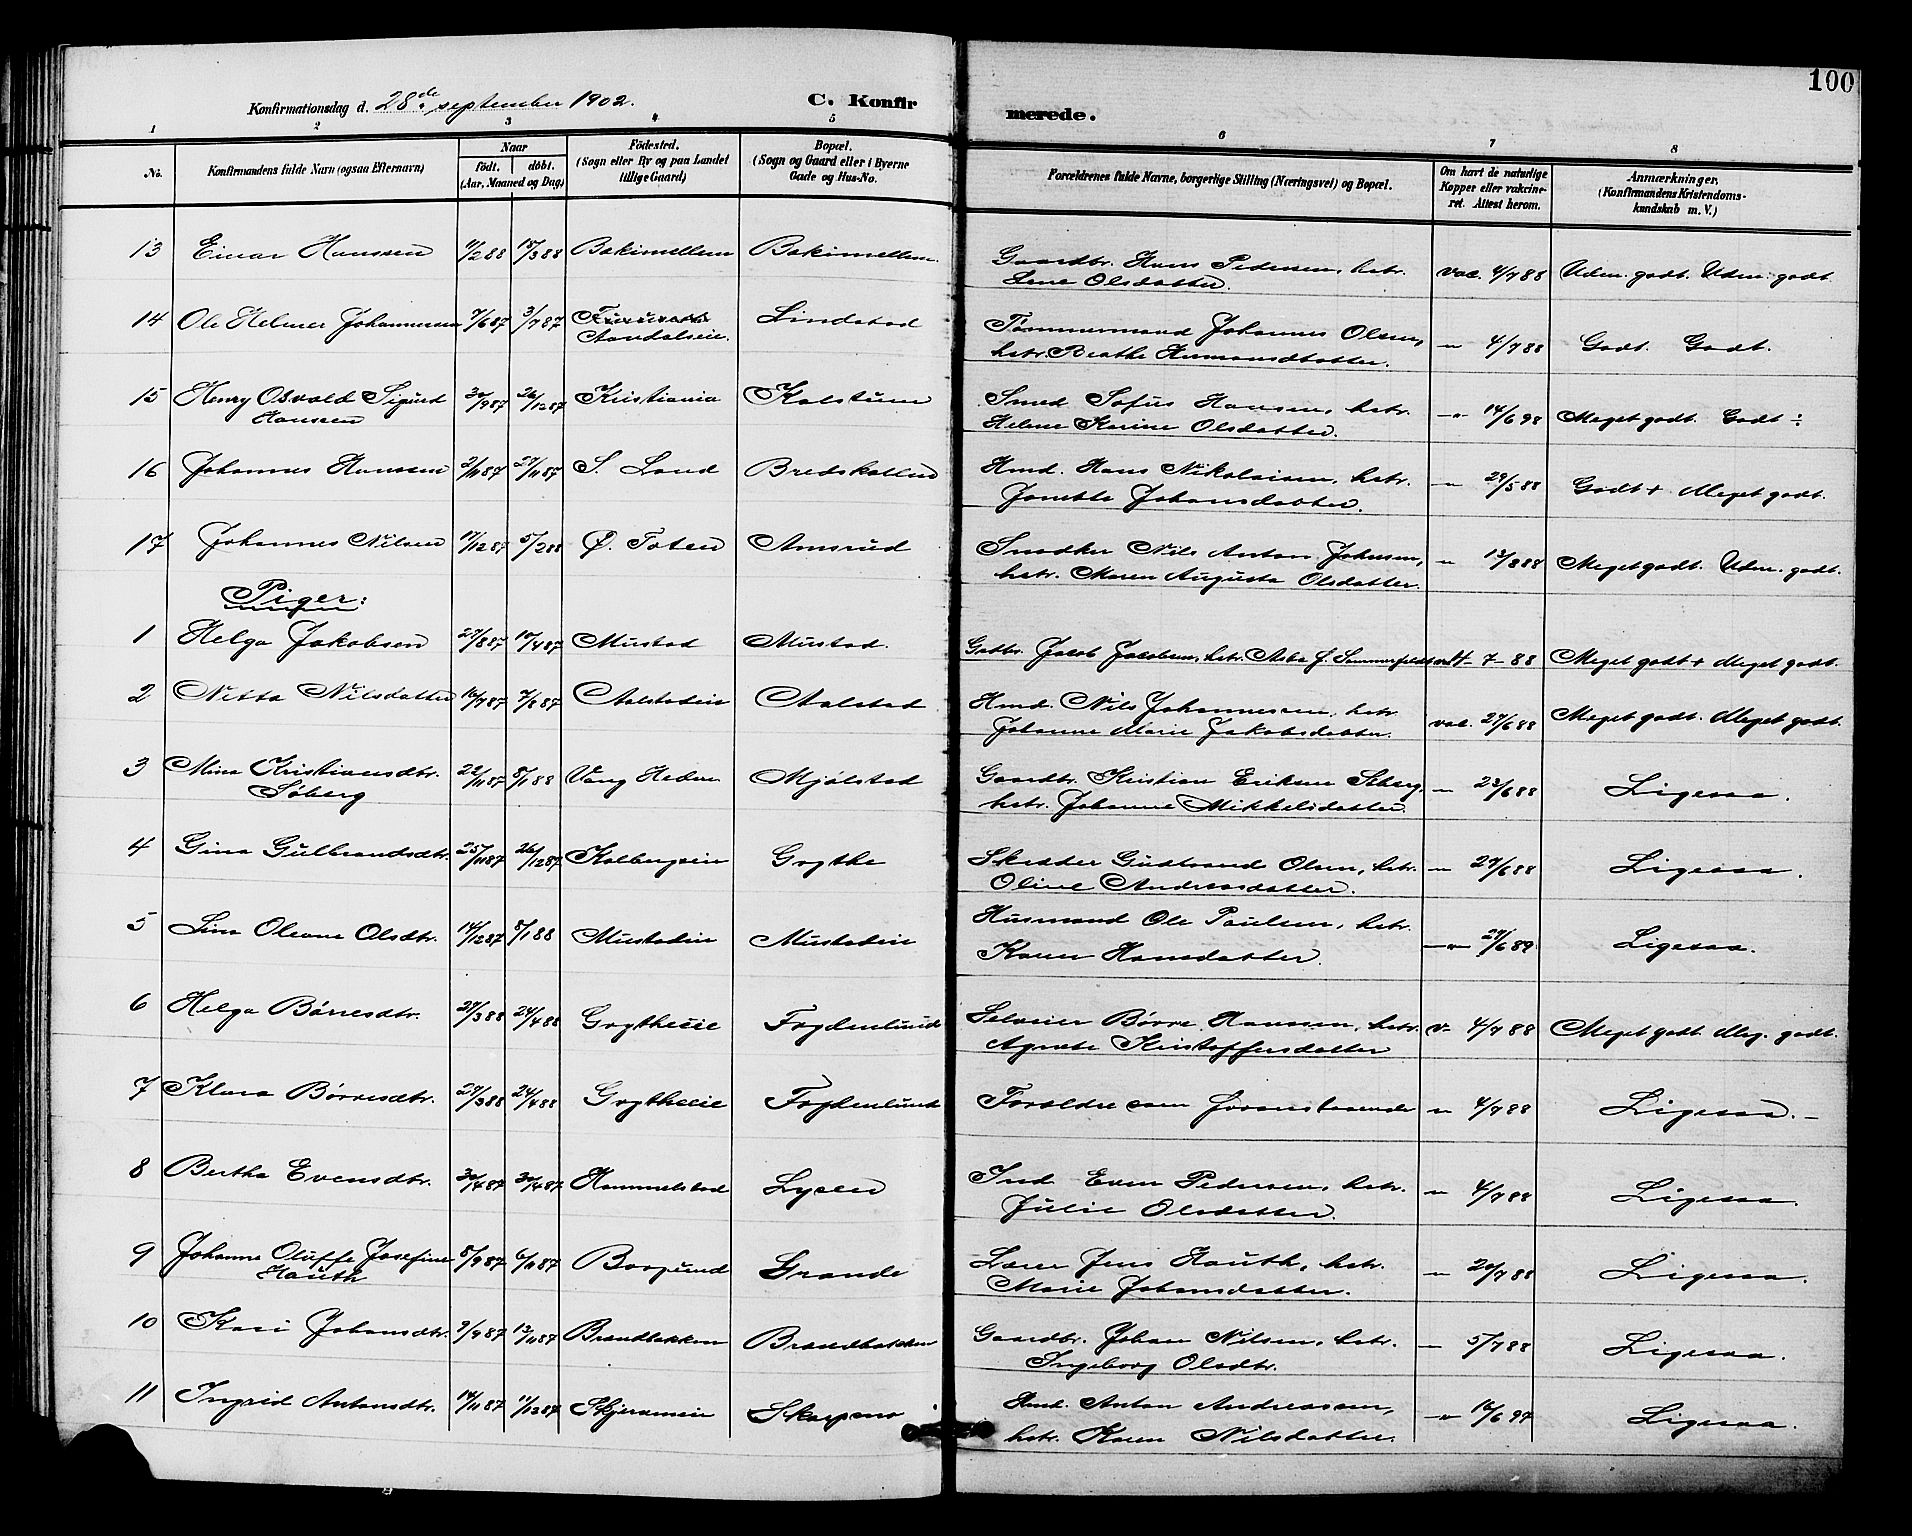 100
Konfirmationsdag d. 28de september 1902.
C. Konfir
merede.
1 2 3 4 5 6 7 8
No.
Konfirmandens fulde Navn (ogsaa Efternavn)
Naar
födt. döbt.
(Aar, Maaned og Dag)
Födested.
(Sogn eller By og paa Landet
tillige Gaard)
Bopæl.
(Sogn og Gaard eller i Byerne
Gade og Hus-No.
Forældrenes fulde Navne, borgerlige Stilling (Næringsvei) og Bopæl.
Om havt de naturlige
Kopper eller vakcine-
ret. Attest herom.
Anmærkninger,
(Konfirmandens Kristendoms-
kundskab m. V.)
13 Einar Hanssen 11/2 88 18/3 88 Bakimellem Bakimellem Gaardbr. Hans Pedersen, hstr. vac. 4/7 88 Udm. godt. Udm. godt.
Lene Olsdatter.
14 Ole Helmer Johannessen 7/6 87 3/7 87 Lindstad Tømmermand Johannes Olsen, " 4/7 88 Godt. Godt.
hstr. Beathe
15 Henry Osvald Sigurd 30/9 87 26/12 87 Kristiania Kolstuen Smed Sofus Hansen, hstr. " 14/6 98 Meget godt. Godt ÷
Hanssen Helene Karine Olsdatter.
16 Johannes Hanssen 2/11 87 27/11 87 S. Land Bredskallen Hmd. Hans Nikolaisen, hstr. " 29/5 88 Godt + Meget godt.
Jonette Johansdatter.
17 Johannes Nilsen 17/12 87 5/2 88 Ø. Toten Amsrud Snedker Nils Anton Johnsen, " 13/8 88 Meget godt. Udm. godt.
hstr. Maren Augusta Olsdatter
Piger:
1 Helga Jakobsen 27/8 87 10/4 87 Mustad Mustad. Gdbr. Jacob Jacobsen, hstr. 7 - 88 Meget godt + Meget godt.
2 Netta Nilsdatter 16/7 87 7/8 87 Aalstadeie Aalstad Hmd. Nils Johannessen, hstr. vac. 27/6 88 Meget godt. Meget godt.
Johanne Marie Jakobsdatter.
3 Mina Kristiansdtr. 22/11 87 8/1 88 Vang Hedm Mjølstad Gaardbr. Kristian Eriksen Søberg " 23/6 88 Ligesaa.
Søberg hstr. Johanne Mikkelsdatter.
4 Gina Gulbrandsdtr. 25/11 87 26/12 87 Kolbergeie Grythe Skrædder Gudbrand Olsen, hstr. " 27/6 88 Ligesaa.
Oline Andreasdatter.
5 Lina Oleane Olsdtr. 14/12 87 8/1 88 Mustadeie Mustadeie Husmand Ole Paulsen, hstr. " 27/6 89. Ligesaa.
Karen Hansdatter.
6 Helga Børresdtr. 27/3 88 24/4 88 Grytheeie Fogdenlund Selveier Børre Hanssen, hstr. v. 4/7 88 Meget godt. Meg. godt.
Agnete Kristoffersdatter
7 Klara Børresdtr. 27/3 88 24/4 88 Grytheeie Fogdenlund Forældre som foranstaaende " 4/7 88 Ligesaa. -
8 Bertha Evensdtr. 30/4 87 30/4 87 Hammelstad Lyseng Ind. Even Pedersen, hstr. " 4/7 88 Ligesaa.
Julie Olsdatter.
9 Johanna Oluffe Josefine 8/9 87 6/11 87 Borgund Grande Lærer Jens Hauth, hstr. " 20/7 88 Ligesaa.
Hauth Marie Johansdatter.
10 Kari Johansdtr. 9/9 87 13/11 87 Brandbakken Brandbakken Gaardbr. Johan Nilsen, hstr. " 5/7 88 Ligesaa.
Ingeborg Olsdtr.
11 Ingrid Antonsdtr. 14/11 87 11/12 87 Skarpsno Hmd. Anton Andreassen, " 16/6 97 Ligesaa.
hstr. Karen Nilsdatter.